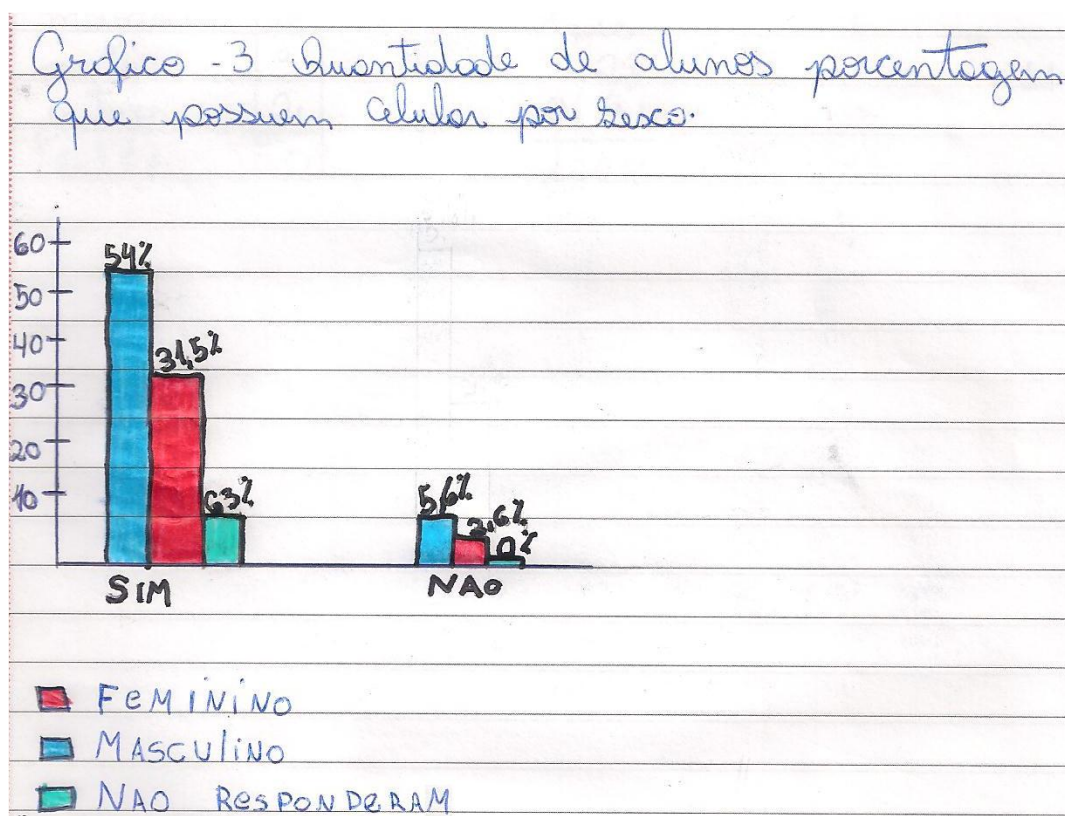 Grafico - 3 Quantidade de alunos porcentagem
que possuem Celular por Sexo.
60
54%
50
40
31,5%
30
20
10
6,3%
5,6%
2,6%
0%
SIM
NAO
FEMININO
MASCULINO
NAO RESPONDERAM